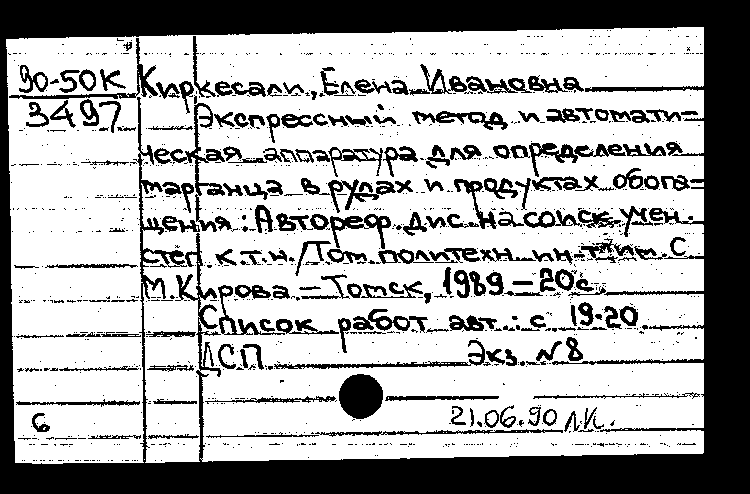 90-50К Киркесали, Елена Ивановна
3497 Экспрессный метод и автомати-
ческая аппаратура для определения
марганца в рудах и продуктах обога-
щения: Автореф. дис. на соиск. учен.
степ. к.т.н. / Том. политехн. ин-т им. С
М. Кирова. – Томск, 1989. – 20с.
Список работ авт.: с 19-20.
ДСП Экз. N8
6 21.06.90 Л.К.